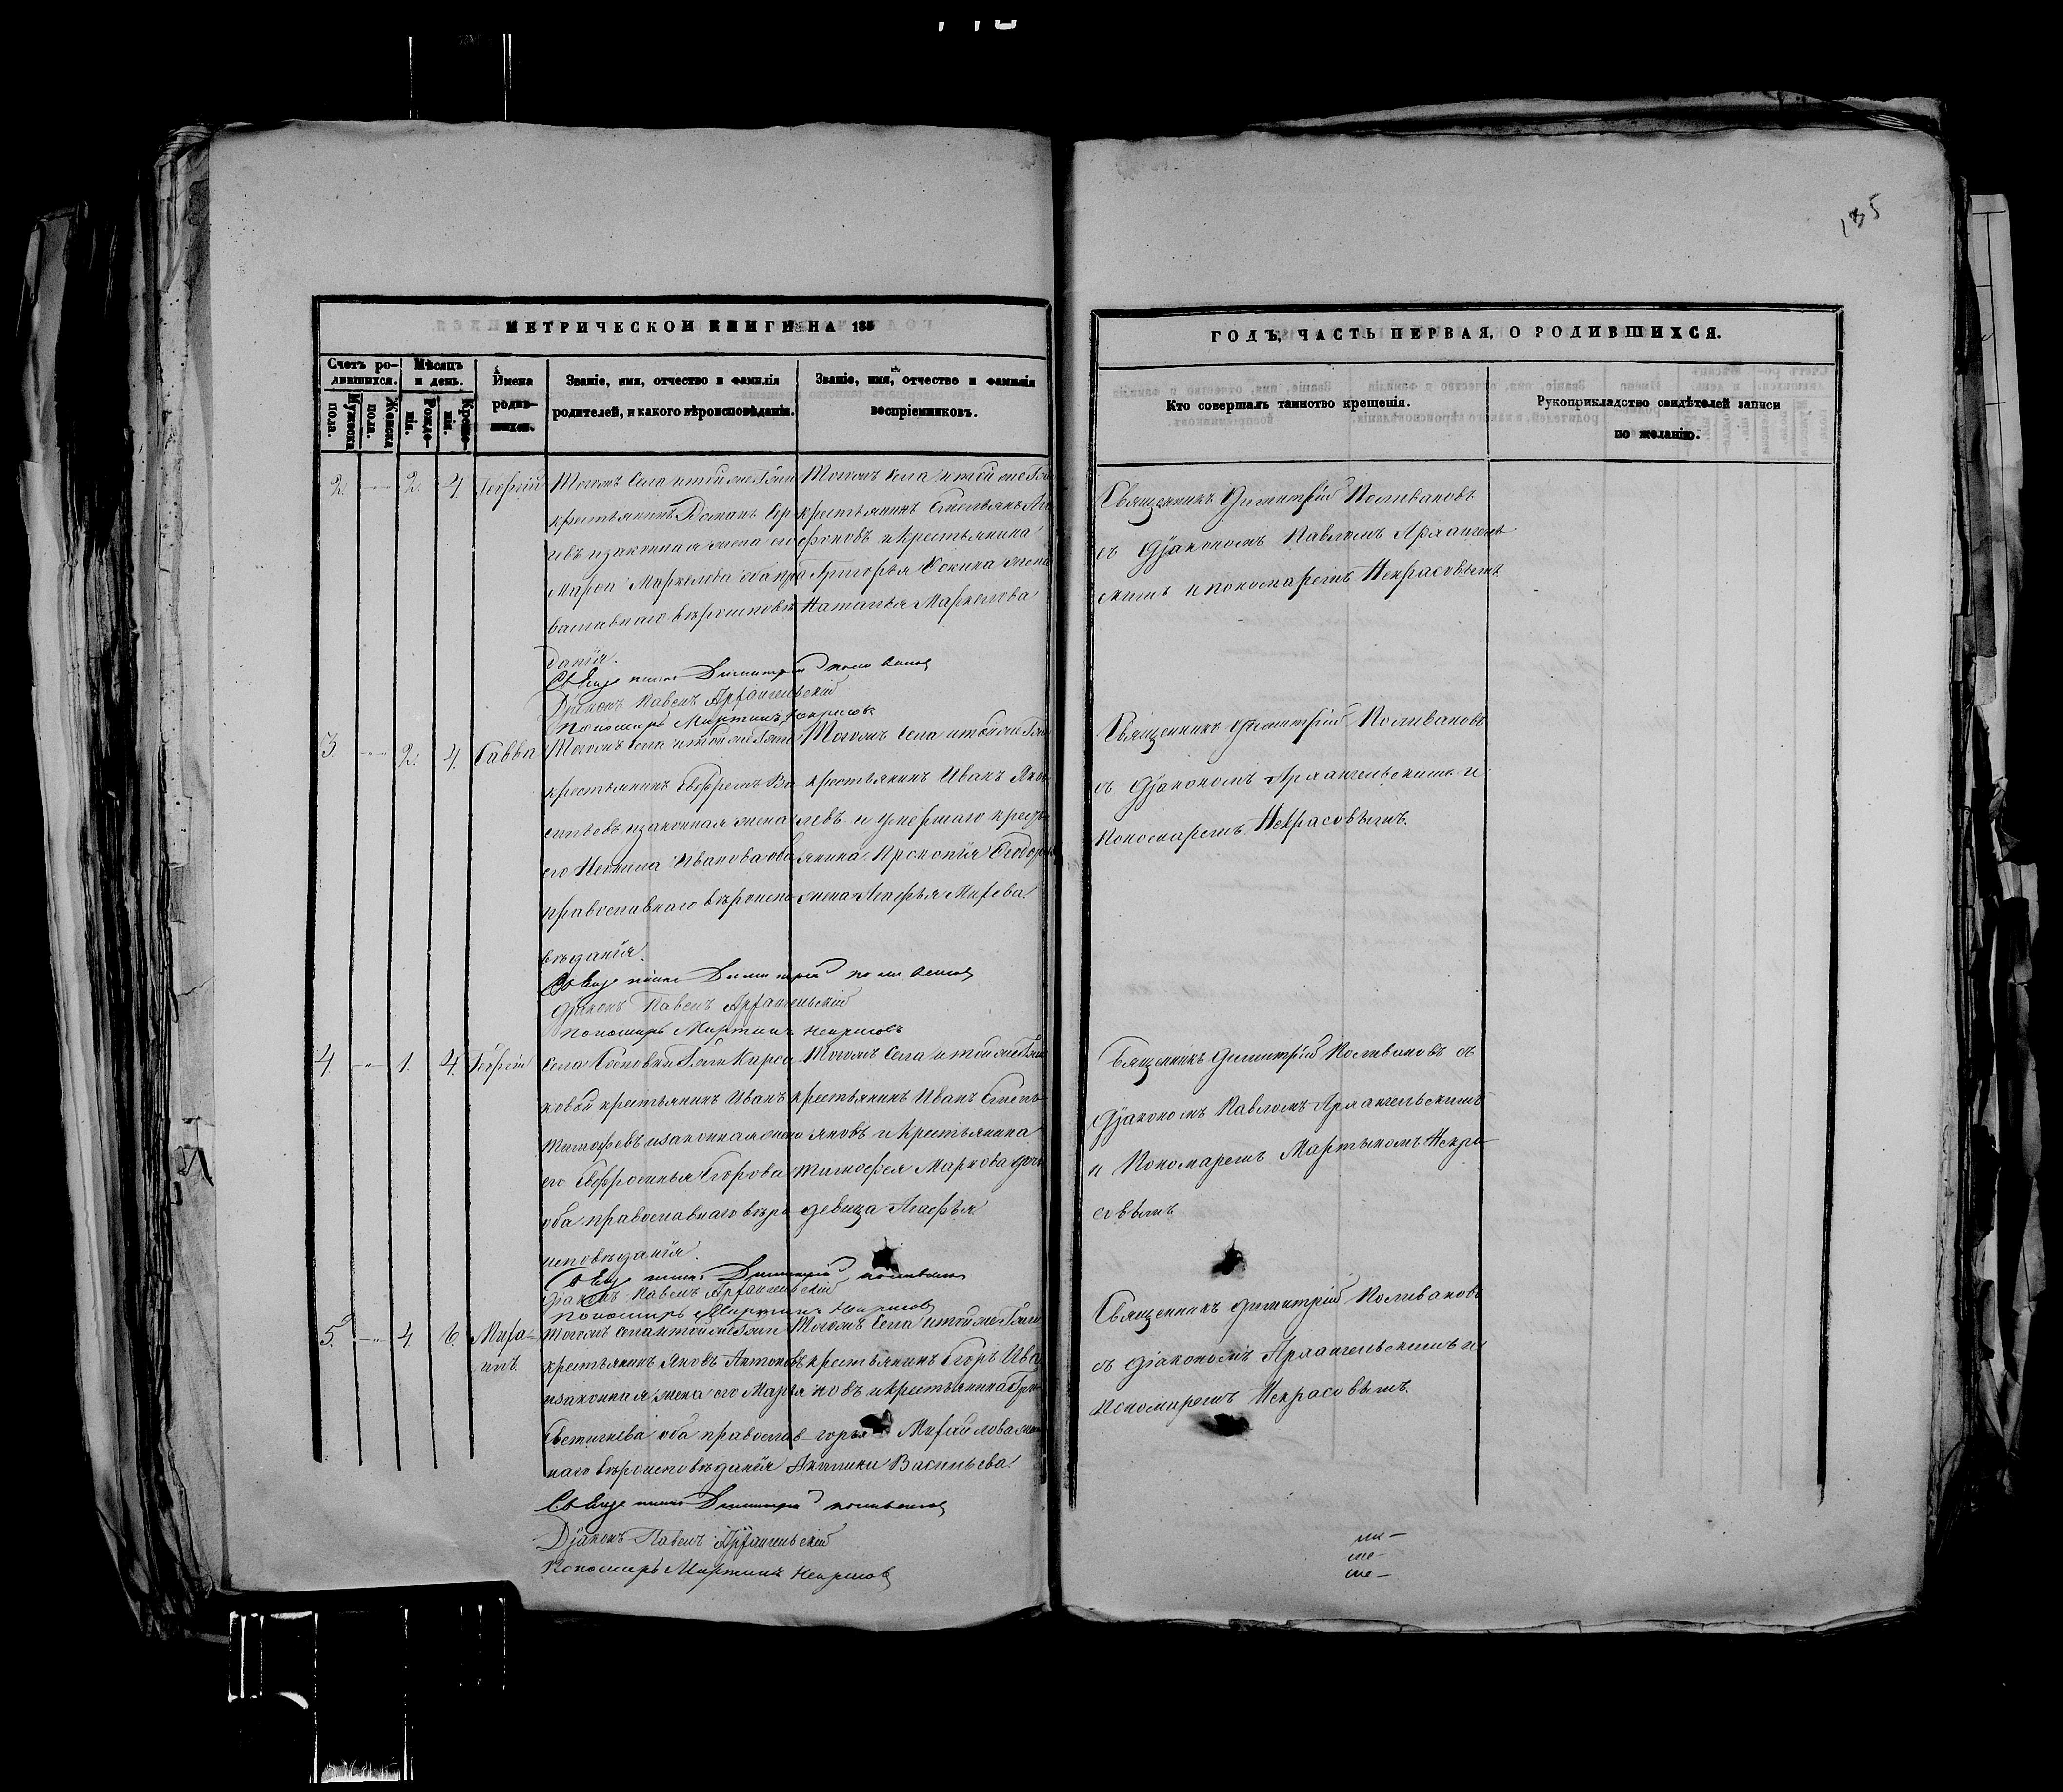 185
МЕТРИЧЕСКОЙ КНИГИ НА 185
ГОДЪ, ЧАСТЬ ПЕРВАЯ, О РОДИВШИХСЯ.
Счетъ родившихся.
Мужеска пола.
Женска пола.
Мѣсяцъ и день.
Рожденія.
Крещенія.
Имена родившихся.
Званіе, имя, отчество и фамилія
родителей, и какого вѣроисповѣданія.
Званіе, имя, отчество и фамилія
воспріемниковъ.
Кто совершалъ таинство крещенія.
Рукоприкладство свидѣтелей записи
по желанію.
2. 2. 4 Георгій
Тогожъ Села и той же
крестьянинъ Романъ Сер
евъ и законная жена его
Марѳа Маркелова оба пра
вославнаго вѣроисповѣ
данія.
Тогожъ Села и той же
крестьянинъ Емельянъ
фоновъ и крестьянина
Григорья Жена
Наталья Маркелова
Священникъ Димитрій Поливановъ
съ Діакономъ Павломъ Архангель
скимъ и пономаремъ Некрасовымъ
Священникъ Димитрій Поливановъ
Діаконъ Павелъ Архангельскій
Пономарь Мартинъ Некрасовъ
3. 2. 4. Савва
Тогожъ Села и той же
крестьянинъ Ва
сильевъ и законная жена
его Неонила Иванова оба
православнаго вѣроиспо
вѣданія.
Тогожъ Села и той же
крестьянинъ Иванъ Яков
левъ и умершаго кресть
янина Прокопія Ѳедор
жена Агафья
Священникъ Димитрій Поливановъ
съ Діакономъ Архангельскимъ и
Пономаремъ Некрасовымъ.
Священникъ Димитрій Поливановъ
Діаконъ Павелъ Архангельскій
Пономарь Мартинъ Некрасовъ
4 1. 4. Георгій
Села
ковой крестьянинъ Иванъ
Тимофеевъ и законная жена
его Евфросинья Егорова
оба православнаго вѣро
исповѣданія.
Тогожъ Села и той же
крестьянинъ Иванъ Емель
яновъ и крестьянина
Тимофея Маркова дочь
девица Агафья
Священникъ Димитрій Поливановъ съ
Діакономъ Павломъ Архангельскимъ
и Пономаремъ Мартыномъ Некра
совымъ
Священникъ Димитрій Поливановъ
Діаконъ Павелъ Архангельскій
Пономарь Мартинъ Некрасовъ
5. 4. 6. Миха
илъ
Тогожъ Села и той же
крестьянинъ Яковъ Антоновъ
и законная жена его Марья
Евстигнѣева оба православ
наго вѣроисповѣданія
Тогожъ Села и той же
крестьянинъ Егоръ Ива
новъ и крестьянина Гри
горья Михайлова жена
Акилина Васильева
Священникъ Димитрій Поливановъ
съ Діакономъ Архангельскимъ и
Пономаремъ Некрасовымъ.
Священникъ Димитрій Поливановъ
Діаконъ Павелъ Архангельскій
Пономарь Мартинъ Некрасовъ